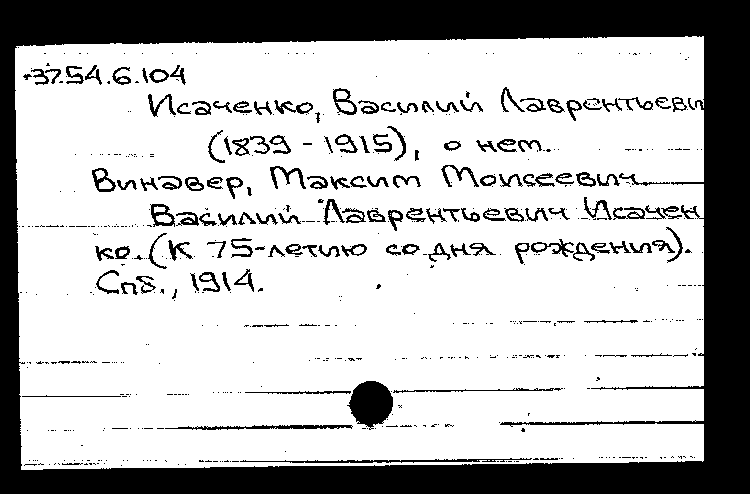 37.54.6.104
Исаченко, Василий Лаврентьеви
(1839 - 1915), о нем.
Винавер, Максим Моисеевич.
Василий Лаврентьевич Исачен
ко. (К 75-летию со дня рождения).
Спб., 1914.